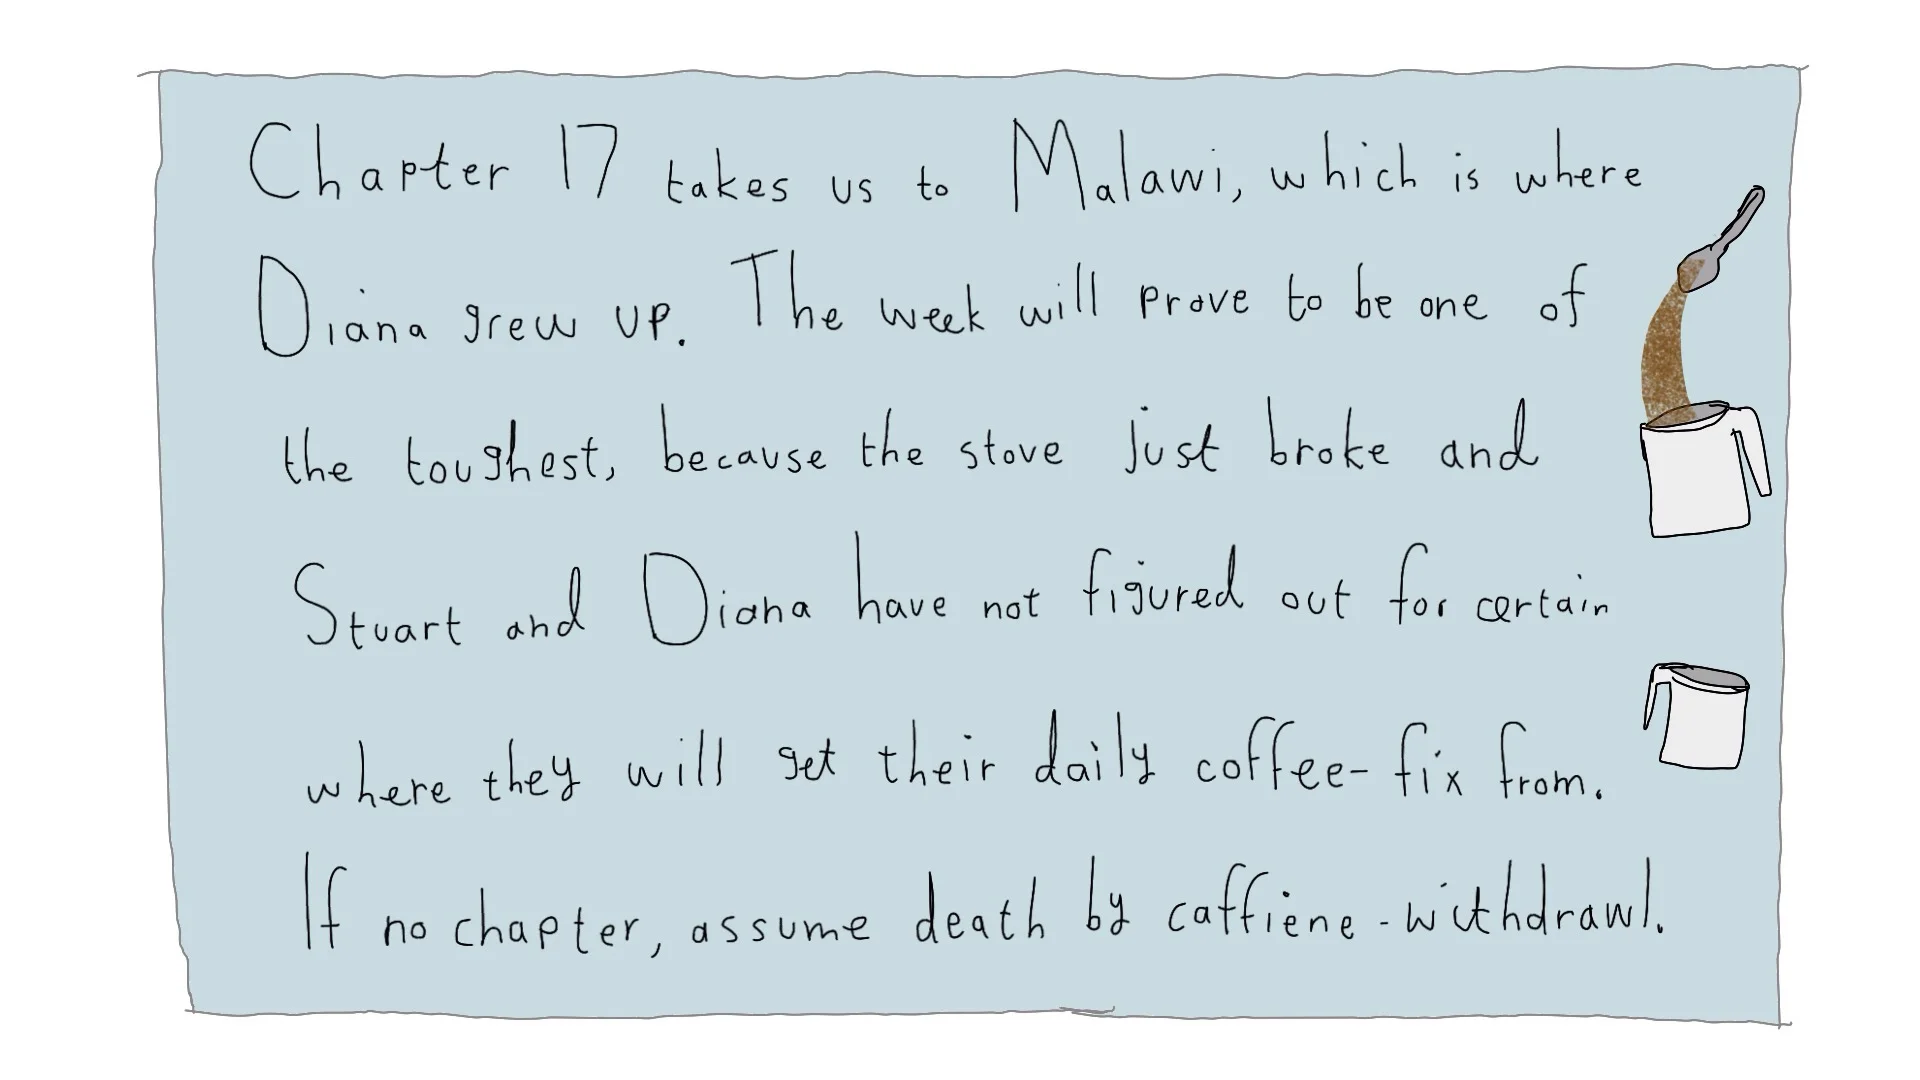 Chapter 17 takes us to Malawi, which is where
Diana grew up. The week will prove to be one of
the toughest, because the stove just broke and
Stuart and Diana have not figured out for certain
where they will get their daily coffee-fix from.
If no chapter, assume death by caffiene-withdrawl.